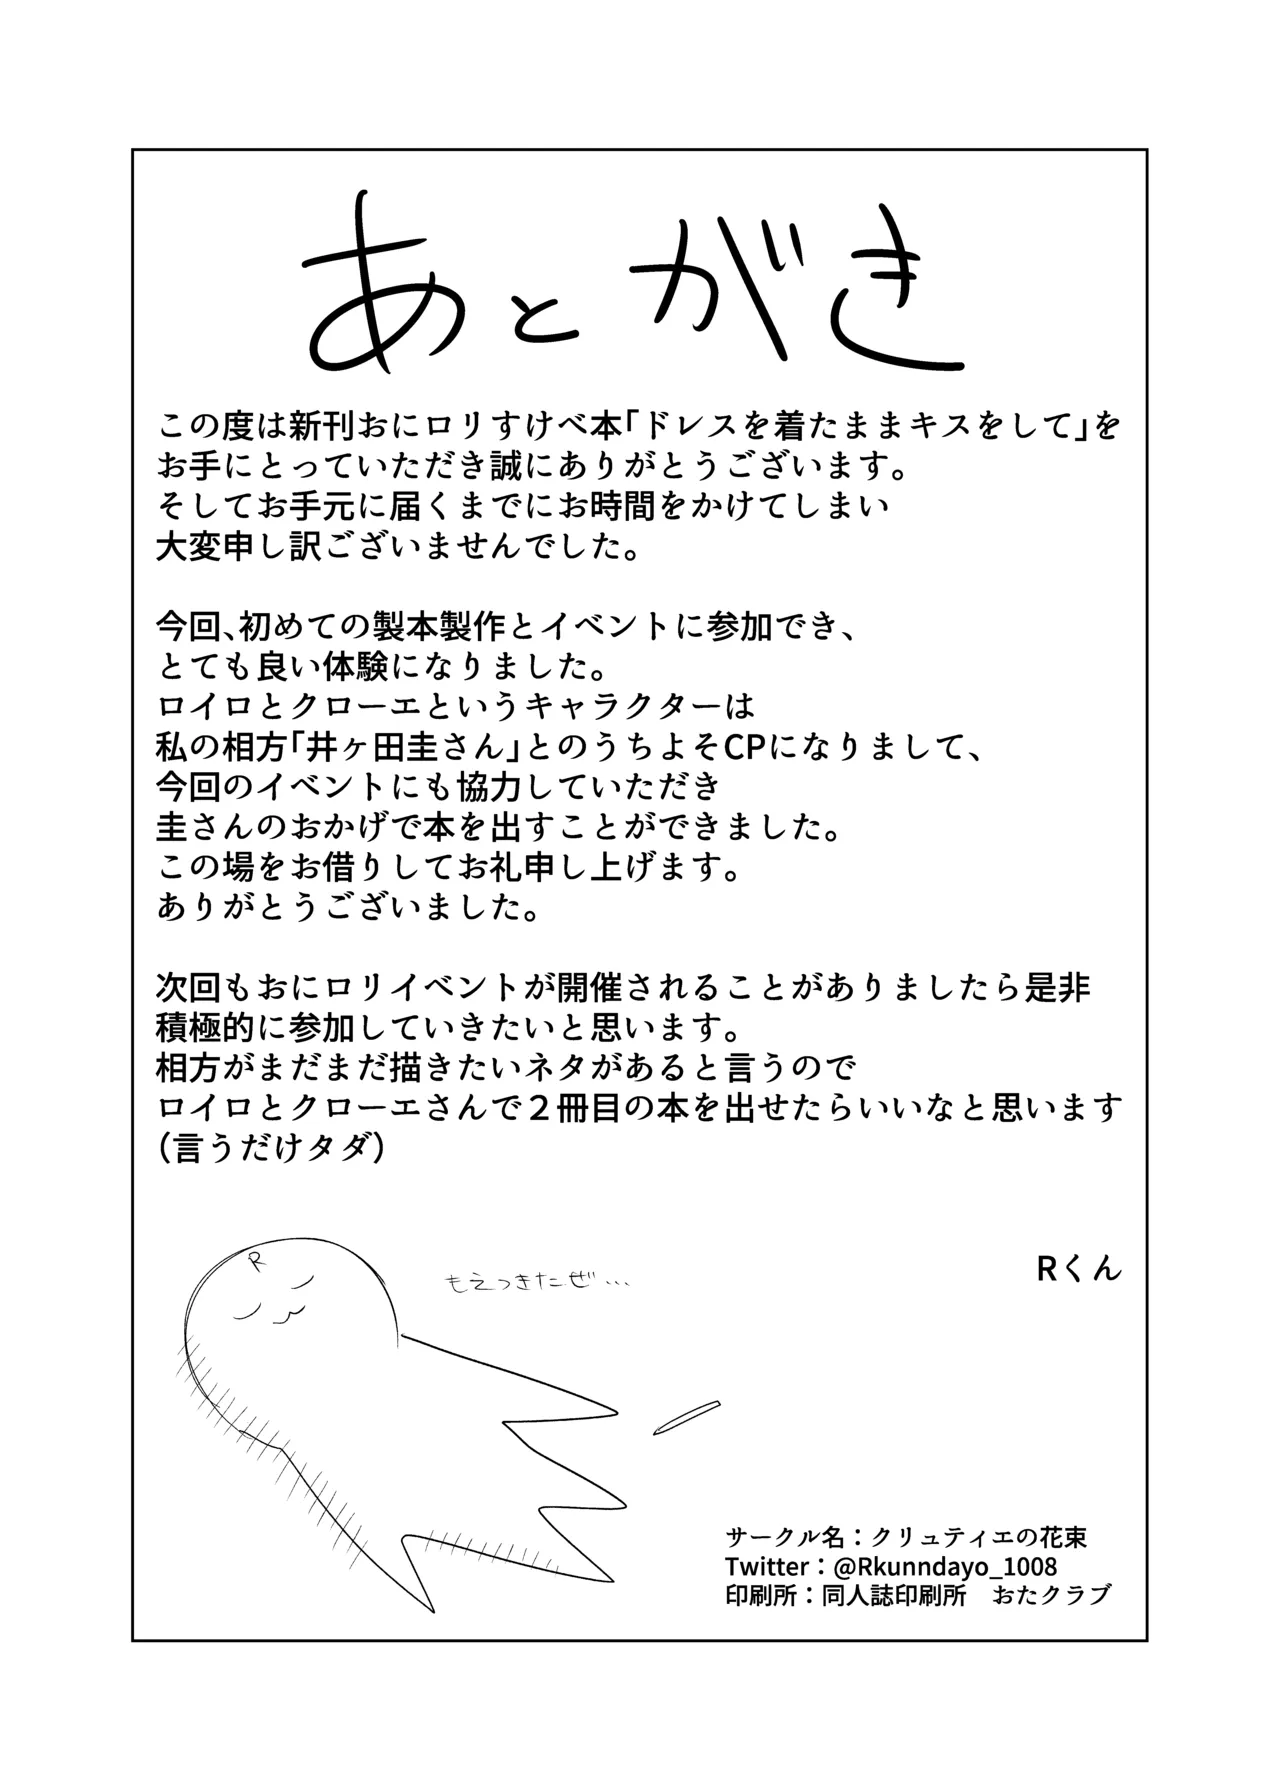 あとがき
この度は新刊おにロリすけべ本「ドレスを着たままキスをして」を
お手にとっていただき誠にありがとうございます。
そしてお手元に届くまでにお時間をかけてしまい
大変申し訳ございませんでした。
今回、初めての製本製作とイベントに参加でき、
とても良い体験になりました。
ロイロとクローエというキャラクターは
私の相方「井ヶ田圭さん」とのうちよそCPになりまして、
今回のイベントにも協力していただき
圭さんのおかげで本を出すことができました。
この場をお借りしてお礼申し上げます。
ありがとうございました。
次回もおにロリイベントが開催されることがありましたら是非
積極的に参加していきたいと思います。
相方がまだまだ描きたいネタがあると言うので
ロイロとクローエさんで２冊目の本を出せたらいいなと思います
（言うだけタダ）
Rくん
R
もえつきたぜ…
サークル名：クリュティエの花束
Twitter：@Rkunndayo_1008
印刷所：同人誌印刷所　おたクラブ